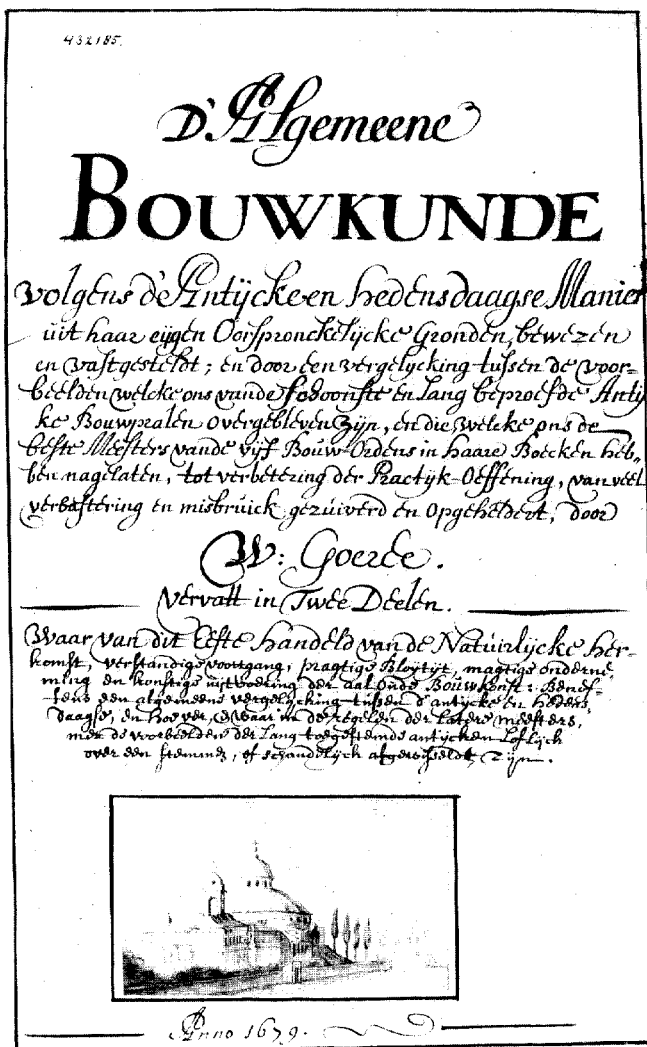 432185.
D'Algemeene
BOUWKUNDE
volgens d'Antijcke en hedensdaagse Manier
uit haar eijgen Oorspronckelijcke Gronden, bewezen
en vastgesteldt; en door een vergelijcking tussen de voor=
beelden welcke ons vande schoonste en lang beproefde Antij
ke Bouwpralen overgebleven zijn, en die welcke ons de
beste Meesters vande vijf Bouw-Ordens in haare Boecken heb=
ben nagelaten, tot verbetering der Practijk-Oeffening, van veel
verbastering en misbruick gezuiverd en Opgeheldert, door
W: Goeree.
Vervatt in Twee Deelen.
Waar van dit Eerste Handeld van de Natuirlijcke Her-
komst, verstandige voortgang, pragtige Bloijtijt, magtige onderne,
ming en konstige uijtvoering der aal Oude Bouwkonst: Benef-
fens een algemeene vergelijcking tussen d'antijcke en hedens,
daagse, en hoe ver, en waar in de regelen der latere meesters,
met de voorbeelden der Lang toegestemde antijcken Loflijck
over een stemmen, of schandelijck afgewisseldt, zijn.
Anno 1679.